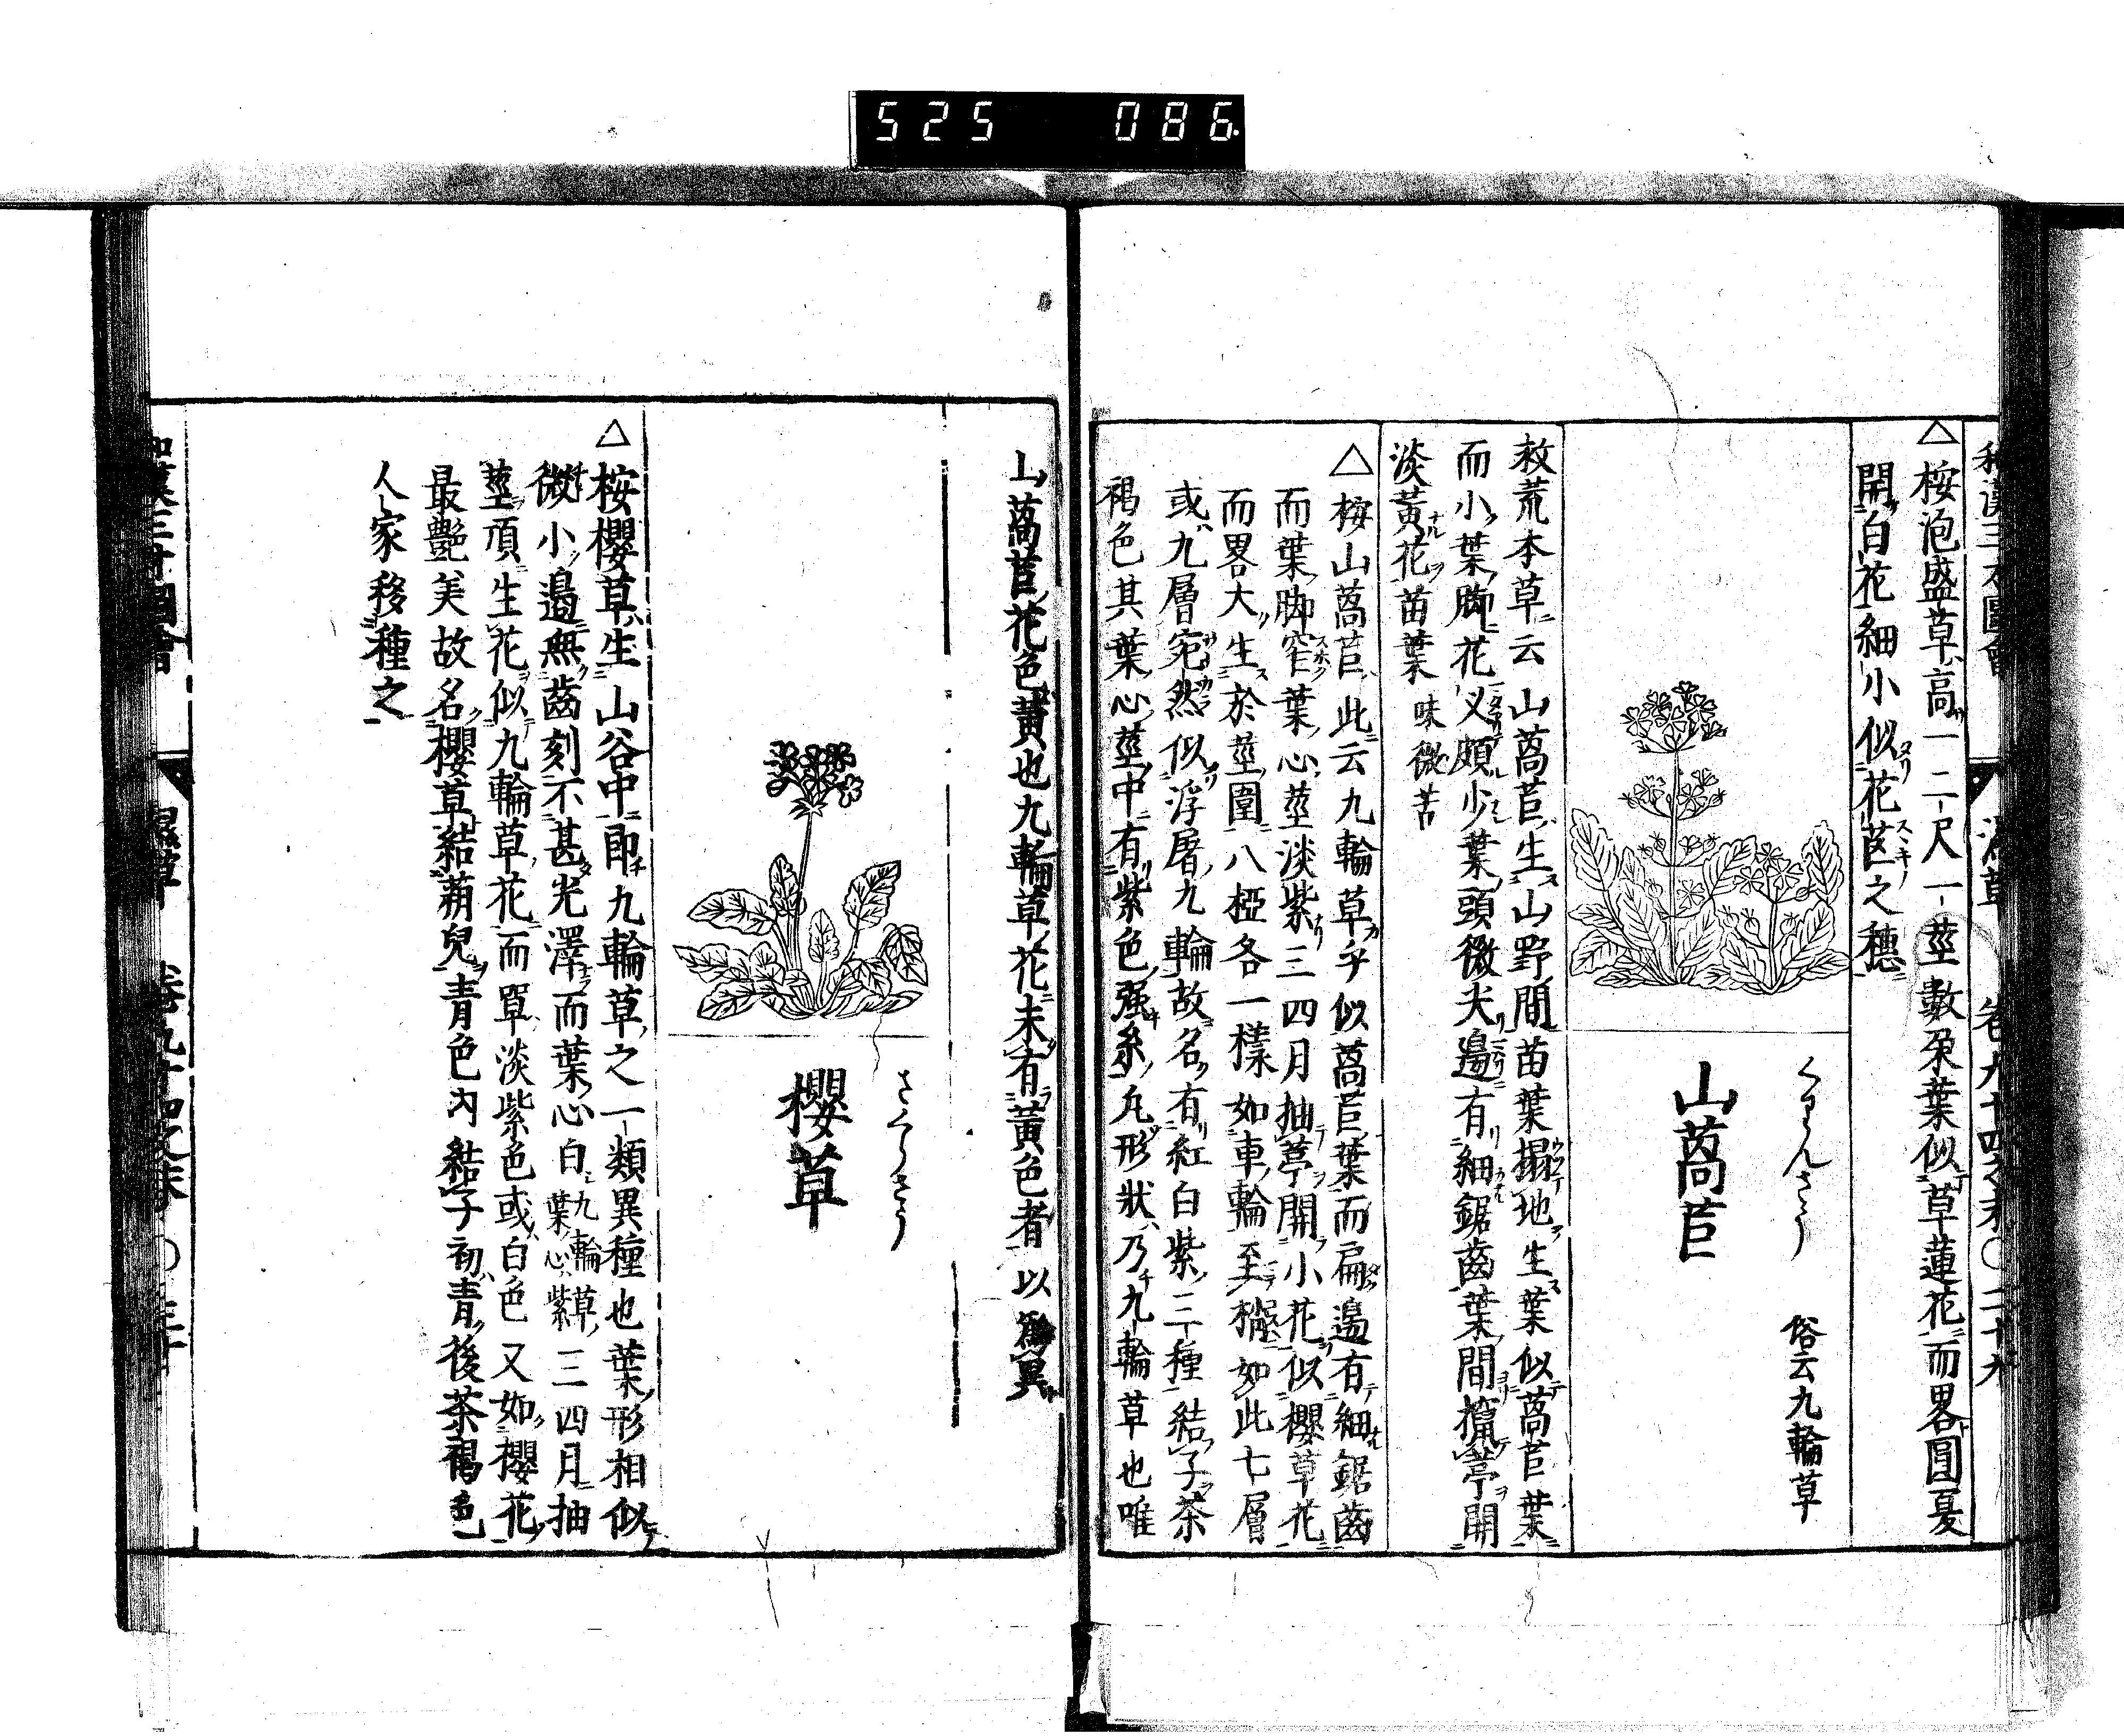 525 086
和漢三才圖會 濕草 卷九十四之末〇二十九
△桉泡盛草高一二尺一莖數朶葉似草蓮花而畧圓夏
開白花細小似花芒之穗
くりんさう
俗云九輪草
山萵苣
救荒本草云山萵苣生山野間苗葉搨地生葉似萵苣葉
而小葉脚花叉頗少葉頭微尖邊有細鋸齒葉間攛葶開
淡黃花苗葉味微苦
△桉山萵苣此云九輪草乎似萵苣葉而扁邊有細鋸齒
而葉脚窄葉心莖淡紫三四月抽葶開小花似櫻草花
而畧大生於莖圍八椏各一樣如車輪至梢如此七層
或九層宛然似浮屠九輪故名有紅白紫三種結子茶
褐色其葉心莖中有紫色强糸凡形狀乃九輪草也唯
山萵苣花色黃也九輪草花未有黃色者以爲異
さくらさう
櫻草
△桉櫻草生山谷中即九輪草之一類異種也葉形相似
微小邊無齒刻不甚光澤而葉心白九輪草葉心紫三四月抽
莖頂生花似九輪草花而單淡紫色或白色又如櫻花
最艶美故名櫻草結蒴兒青色內結子初青後茶褐色
人家移種之
和漢三才圖會 濕草 卷九十四之末〇三十